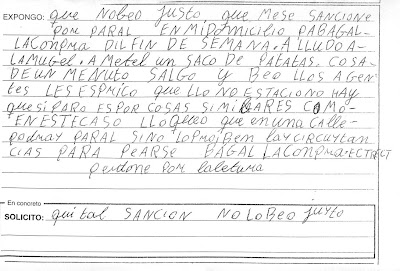 EXPONGO: que NOBEO JUSTO, que MESE SANCIONE
POR PARAL EN MI DOMICILIO PA BAGAL-
LA CONPRA DIL FIN DE SEMANA. A LLUDO A-
LA MUGEL. A METEL UN SACO DE PATATAS. COSA-
DE UN MENUTO SALGO Y BEO LLOS AGEN-
tes LES ESPRICO que LLO NO ESTACIONO HAY
que SI PARO ES POR COSAS SIMILARES COMO-
EN ESTE CASO LLO CREO que EN UNA CALLE-
podmay PARAL SI NO LO PROIBEM LAY CIRCUYTAN
CIAS PARA PEARSE BAGAL LA CONPRA. ECT ECT
perdone POR la letura
En concreto
SOLICITO: quital SANCION NO LO BEO juyto